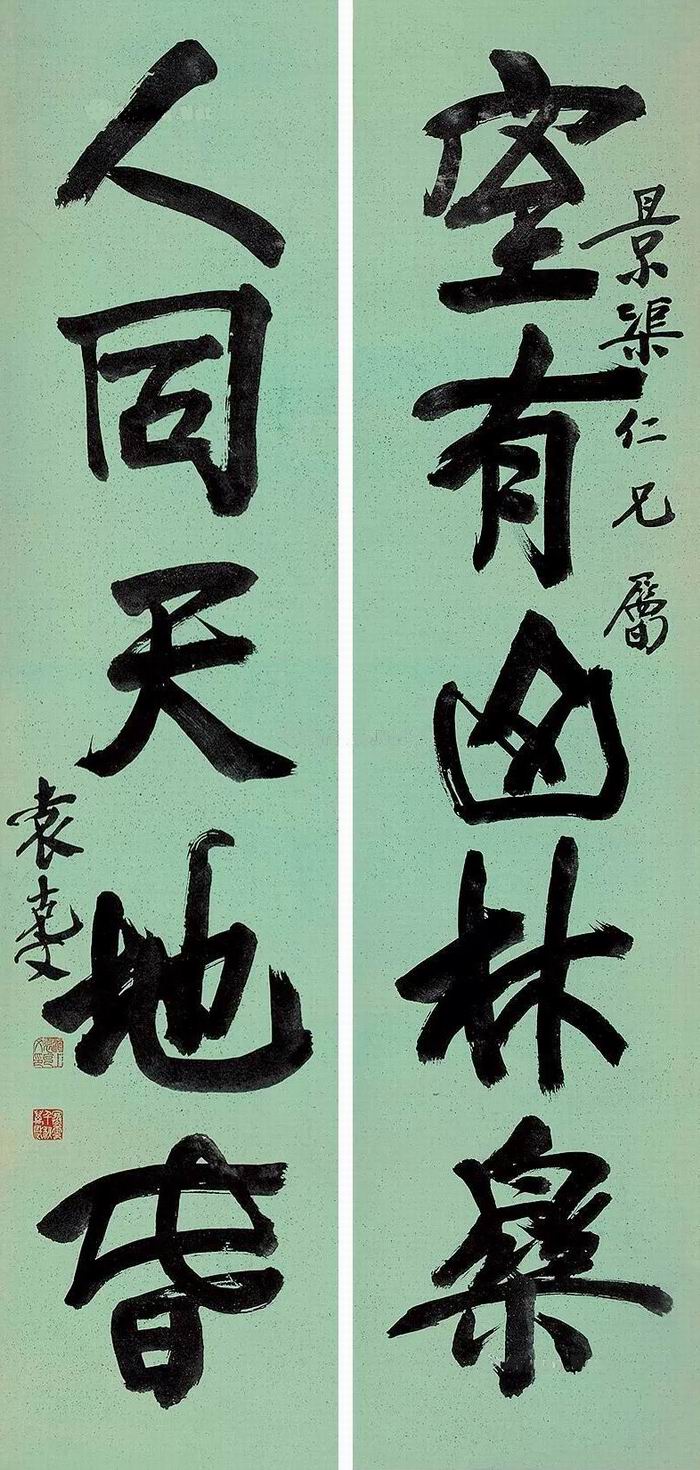 景渠仁兄屬
室有山林樂
人同天地春
袁克文